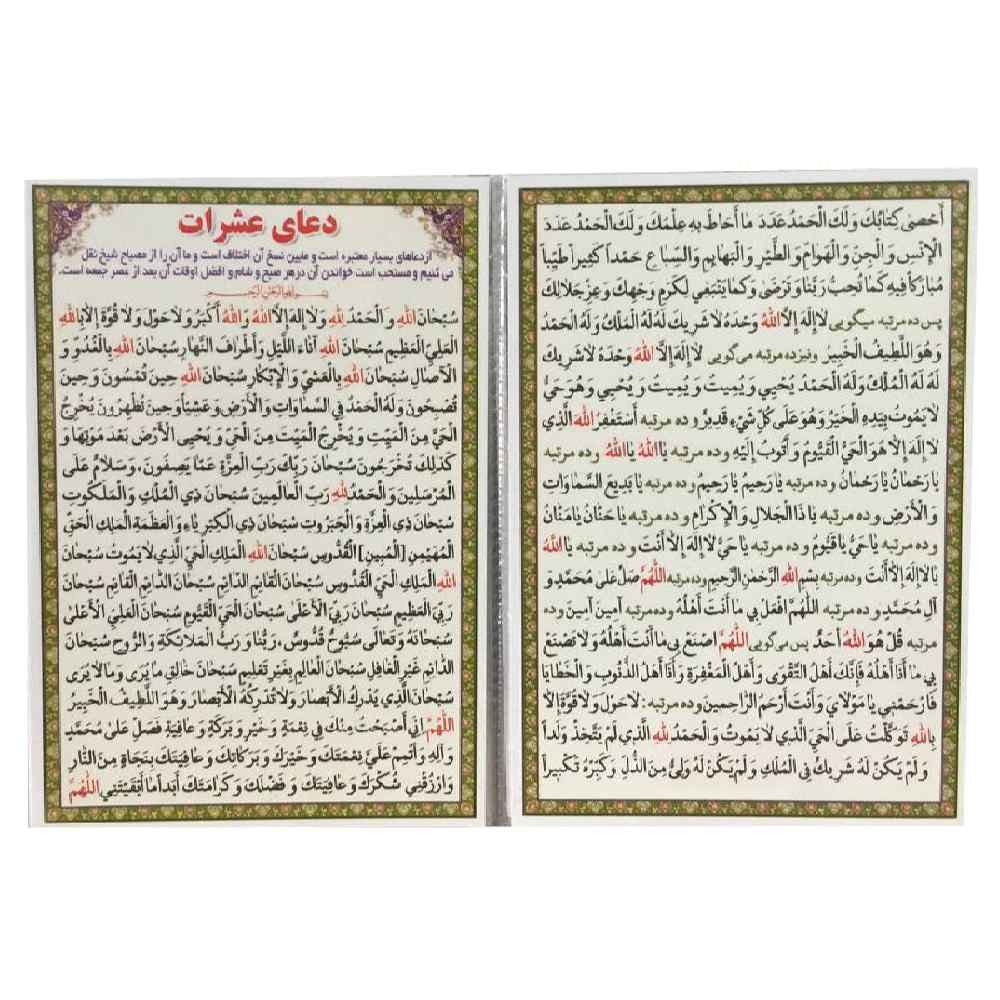 دعای عشرات
ازدعاهای بسیار معتبره است و مابین نسخ آن اختلاف است و ما آن را از مصباح شیخ نقل
می کنیم و مستحب است خواندن آن در هر صبح و شام و افضل اوقات آن بعد از عصر جمعه است.
بسم الله الرحمن الرحیم
سُبْحَانَ اللهِ وَ الْحَمْدُ لِلهِ وَ لَا إِلهَ إِلَّا اللهُ وَ اللهُ أَكْبَرُ وَ لَا حَوْلَ وَ لَا قُوَّةَ إِلَّا بِاللهِ
الْعَلِيِّ الْعَظِيمِ سُبْحَانَ اللهِ آنَاءَ اللَّيْلِ وَ أَطْرَافَ النَّهَارِ سُبْحَانَ اللهِ بِالْغُدُوِّ وَ
الْآصَالِ سُبْحَانَ اللهِ بِالْعَشِيِّ وَ الْإِبْكَارِ سُبْحَانَ اللهِ حِينَ تُمْسُونَ وَ حِينَ
تُصْبِحُونَ وَ لَهُ الْحَمْدُ فِي السَّمَاوَاتِ وَ الْأَرْضِ وَ عَشِيّاً وَ حِينَ تُظْهِرُونَ يُخْرِجُ
الْحَيَّ مِنَ الْمَيِّتِ وَ يُخْرِجُ الْمَيِّتَ مِنَ الْحَيِّ وَ يُحْيِي الْأَرْضَ بَعْدَ مَوْتِهَا وَ
كَذلِكَ تُخْرَجُونَ سُبْحَانَ رَبِّكَ رَبِّ الْعِزَّةِ عَمَّا يَصِفُونَ، وَ سَلَامٌ عَلَى
الْمُرْسَلِينَ وَ الْحَمْدُ لِلهِ رَبِّ الْعَالَمِينَ سُبْحَانَ ذِي الْمُلْكِ وَ الْمَلَكُوتِ
سُبْحَانَ ذِي الْعِزَّةِ وَ الْجَبَرُوتِ سُبْحَانَ ذِي الْكِبْرِيَاءِ وَ الْعَظَمَةِ الْمَلِكِ الْحَقِّ
الْمُهَيْمِنِ [الْمُبِينِ] الْقُدُّوسِ سُبْحَانَ اللهِ الْمَلِكِ الْحَيِّ الَّذِي لَا يَمُوتُ سُبْحَانَ
اللهِ الْمَلِكِ الْحَيِّ الْقُدُّوسِ سُبْحَانَ الْقَائِمِ الدَّائِمِ سُبْحَانَ الدَّائِمِ الْقَائِمِ سُبْحَانَ
رَبِّيَ الْعَظِيمِ سُبْحَانَ رَبِّيَ الْأَعْلَى سُبْحَانَ الْحَيِّ الْقَيُّومِ سُبْحَانَ الْعَلِيِّ الْأَعْلَى
سُبْحَانَهُ وَ تَعَالَى سُبُّوحٌ قُدُّوسٌ، رَبُّنَا وَ رَبُّ الْمَلَائِكَةِ وَ الرُّوحِ سُبْحَانَ
الدَّائِمِ غَيْرِ الْغَافِلِ سُبْحَانَ الْعَالِمِ بِغَيْرِ تَعْلِيمٍ سُبْحَانَ خَالِقِ مَا يُرَى وَ مَا لَا يُرَى
سُبْحَانَ الَّذِي يُدْرِكُ الْأَبْصَارَ وَ لَا تُدْرِكُهُ الْأَبْصَارُ وَ هُوَ اللَّطِيفُ الْخَبِيرُ
اللّٰهُمَّ إِنِّي أَصْبَحْتُ مِنْكَ فِي نِعْمَةٍ وَ خَيْرٍ وَ بَرَكَةٍ وَ عَافِيَةٍ فَصَلِّ عَلَى مُحَمَّدٍ
وَ آلِهِ وَ أَتْمِمْ عَلَيَّ نِعْمَتَكَ وَ خَيْرَكَ وَ بَرَكَاتِكَ وَ عَافِيَتَكَ بِنَجَاةٍ مِنَ النَّارِ
وَ ارْزُقْنِي شُكْرَكَ وَ عَافِيَتَكَ وَ فَضْلَكَ وَ كَرَامَتَكَ أَبَداً مَا أَبْقَيْتَنِي اللّٰهُمَّ
أَحْصَى كِتَابُكَ وَ لَكَ الْحَمْدُ عَدَدَ مَا أَحَاطَ بِهِ عِلْمُكَ وَ لَكَ الْحَمْدُ عَدَدَ
الْإِنْسِ وَ الْجِنِّ وَ الْهَوَامِّ وَ الطَّيْرِ وَ الْبَهَائِمِ وَ السِّبَاعِ حَمْداً كَثِيراً طَيِّباً
مُبَارَكاً فِيهِ كَمَا تُحِبُّ رَبَّنَا وَ تَرْضَى وَ كَمَا يَنْبَغِي لِكَرَمِ وَجْهِكَ وَ عِزِّ جَلَالِكَ
پس ده مرتبه میگویی لَا إِلهَ إِلَّا اللهُ وَحْدَهُ لَا شَرِيكَ لَهُ لَهُ الْمُلْكُ وَ لَهُ الْحَمْدُ
وَ هُوَ اللَّطِيفُ الْخَبِيرُ ونیزده مرتبه می‌گویی لَا إِلهَ إِلَّا اللهُ وَحْدَهُ لَا شَرِيكَ
لَهُ لَهُ الْمُلْكُ وَ لَهُ الْحَمْدُ يُحْيِي وَ يُمِيتُ وَ يُمِيتُ وَ يُحْيِي وَ هُوَ حَيٌّ
لَا يَمُوتُ بِيَدِهِ الْخَيْرُ وَ هُوَ عَلَى كُلِّ شَيْءٍ قَدِيرٌ و ده مرتبه أَسْتَغْفِرُ اللهَ الَّذِي
لَا إِلهَ إِلَّا هُوَ الْحَيُّ الْقَيُّومُ وَ أَتُوبُ إِلَيْهِ و ده مرتبه يَا اللهُ يَا اللهُ و ده مرتبه
يَا رَحْمَانُ يَا رَحْمَانُ و ده مرتبه يَا رَحِيمُ يَا رَحِيمُ و ده مرتبه يَا بَدِيعَ السَّمَاوَاتِ
وَ الْأَرْضِ و ده مرتبه يَا ذَا الْجَلَالِ وَ الْإِكْرَامِ و ده مرتبه يَا حَنَّانُ يَا مَنَّانُ
و ده مرتبه يَا حَيُّ يَا قَيُّومُ و ده مرتبه يَا حَيُّ لَا إِلهَ إِلَّا أَنْتَ و ده مرتبه يَا اللهُ
يَا لَا إِلهَ إِلَّا أَنْتَ و ده مرتبه بِسْمِ اللهِ الرَّحْمٰنِ الرَّحِيمِ و ده مرتبه اللّٰهُمَّ صَلِّ عَلَى مُحَمَّدٍ وَ
آلِ مُحَمَّدٍ و ده مرتبه اللّٰهُمَّ افْعَلْ بِي مَا أَنْتَ أَهْلُهُ و ده مرتبه آمِينَ آمِينَ و ده
مرتبه قُلْ هُوَ اللهُ أَحَدٌ پس می‌گویی اللّٰهُمَّ اصْنَعْ بِي مَا أَنْتَ أَهْلُهُ وَ لَا تَصْنَعْ
بِي مَا أَنَا أَهْلُهُ فَإِنَّكَ أَهْلُ التَّقْوَى وَ أَهْلُ الْمَغْفِرَةِ وَ أَنَا أَهْلُ الذُّنُوبِ وَ الْخَطَايَا
فَارْحَمْنِي يَا مَوْلَايَ وَ أَنْتَ أَرْحَمُ الرَّاحِمِينَ و ده مرتبه: لَا حَوْلَ وَ لَا قُوَّةَ إِلَّا
بِاللهِ تَوَكَّلْتُ عَلَى الْحَيِّ الَّذِي لَا يَمُوتُ وَ الْحَمْدُ لِلهِ الَّذِي لَمْ يَتَّخِذْ وَلَداً
وَ لَمْ يَكُنْ لَهُ شَرِيكٌ فِي الْمُلْكِ وَ لَمْ يَكُنْ لَهُ وَلِيٌّ مِنَ الذُّلِّ وَ كَبِّرْهُ تَكْبِيراً